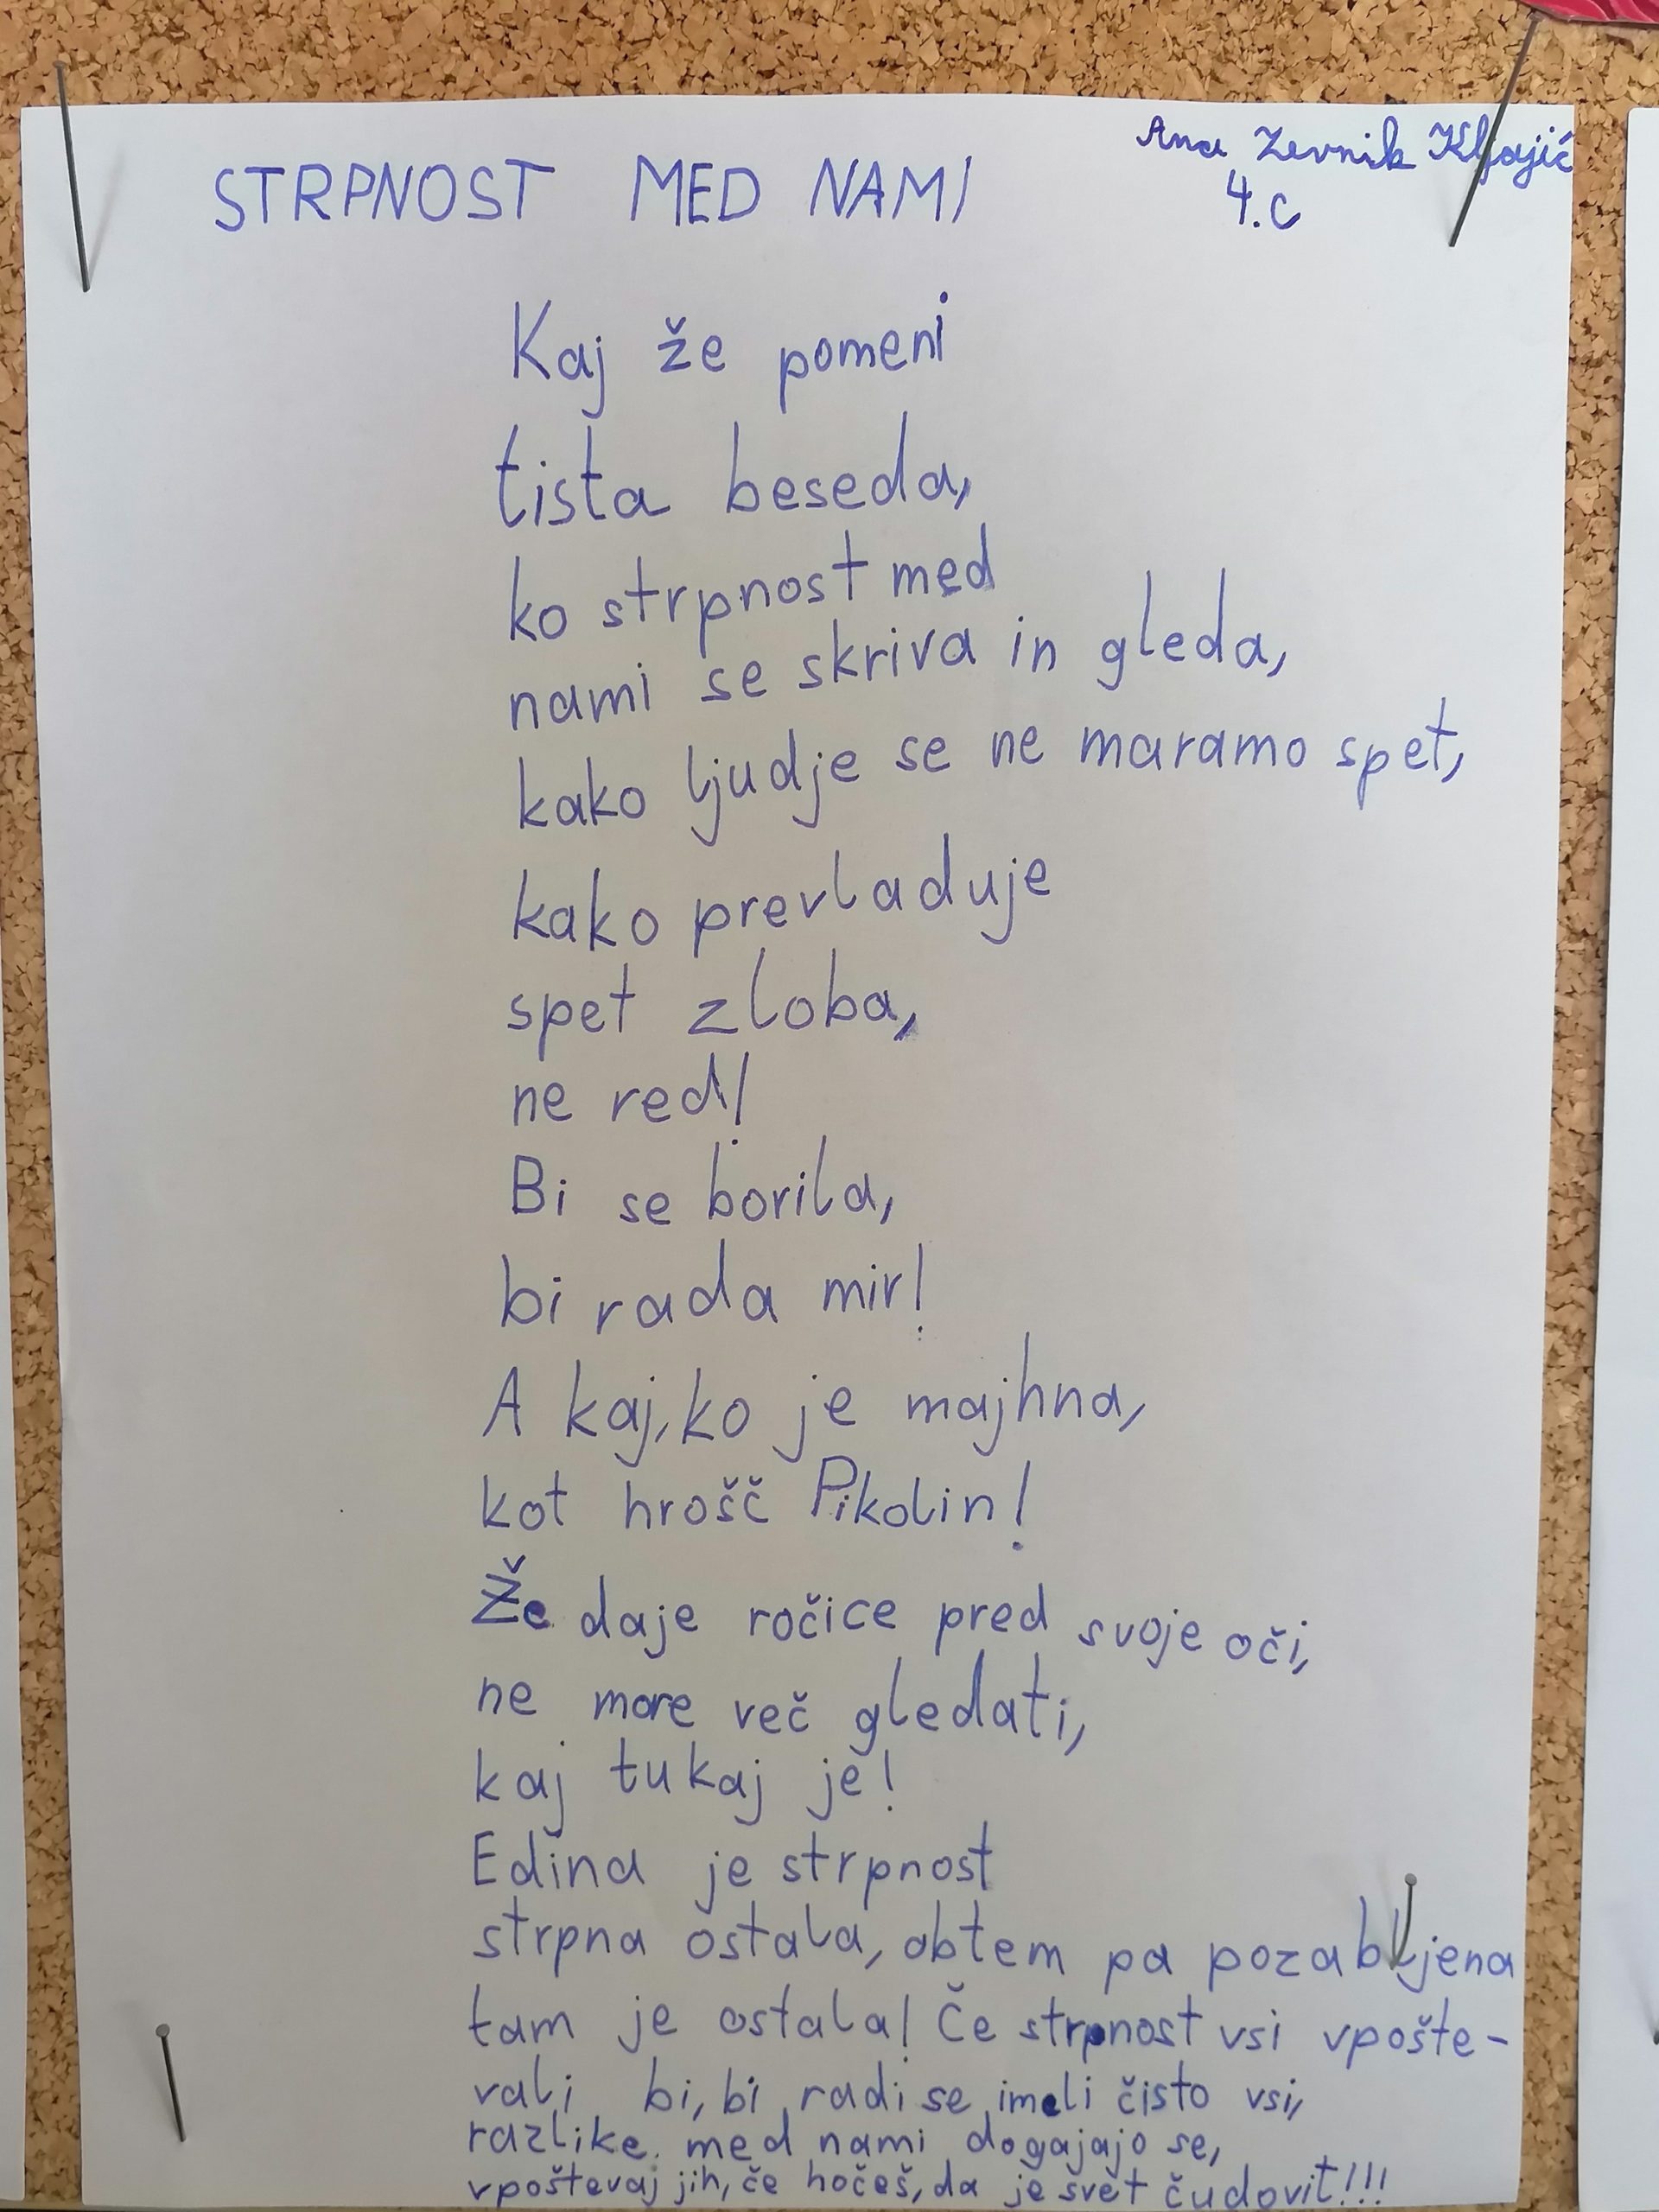 Ana Zevnik Kljajić
STRPNOST MED NAMI
4.c
Kaj že pomeni
tista beseda,
ko strpnost med
nami se skriva in gleda,
kako ljudje se ne maramo spet,
kako prevladuje
spet zloba,
ne red!
Bi se borila,
bi rada mir!
A kaj, ko je majhna,
kot hrošč Pikolin!
Že daje ročice pred svoje oči,
ne more več gledati,
kaj tukaj je!
Edina je strpnost
strpna ostala, obtem pa pozabljena
tam je ostala! Če strpnost vsi vpošte-
vali bi, bi radi se imeli čisto vsi,
razlike med nami dogajajo se,
vpoštevaj jih, če hočeš, da je svet čudovit!!!